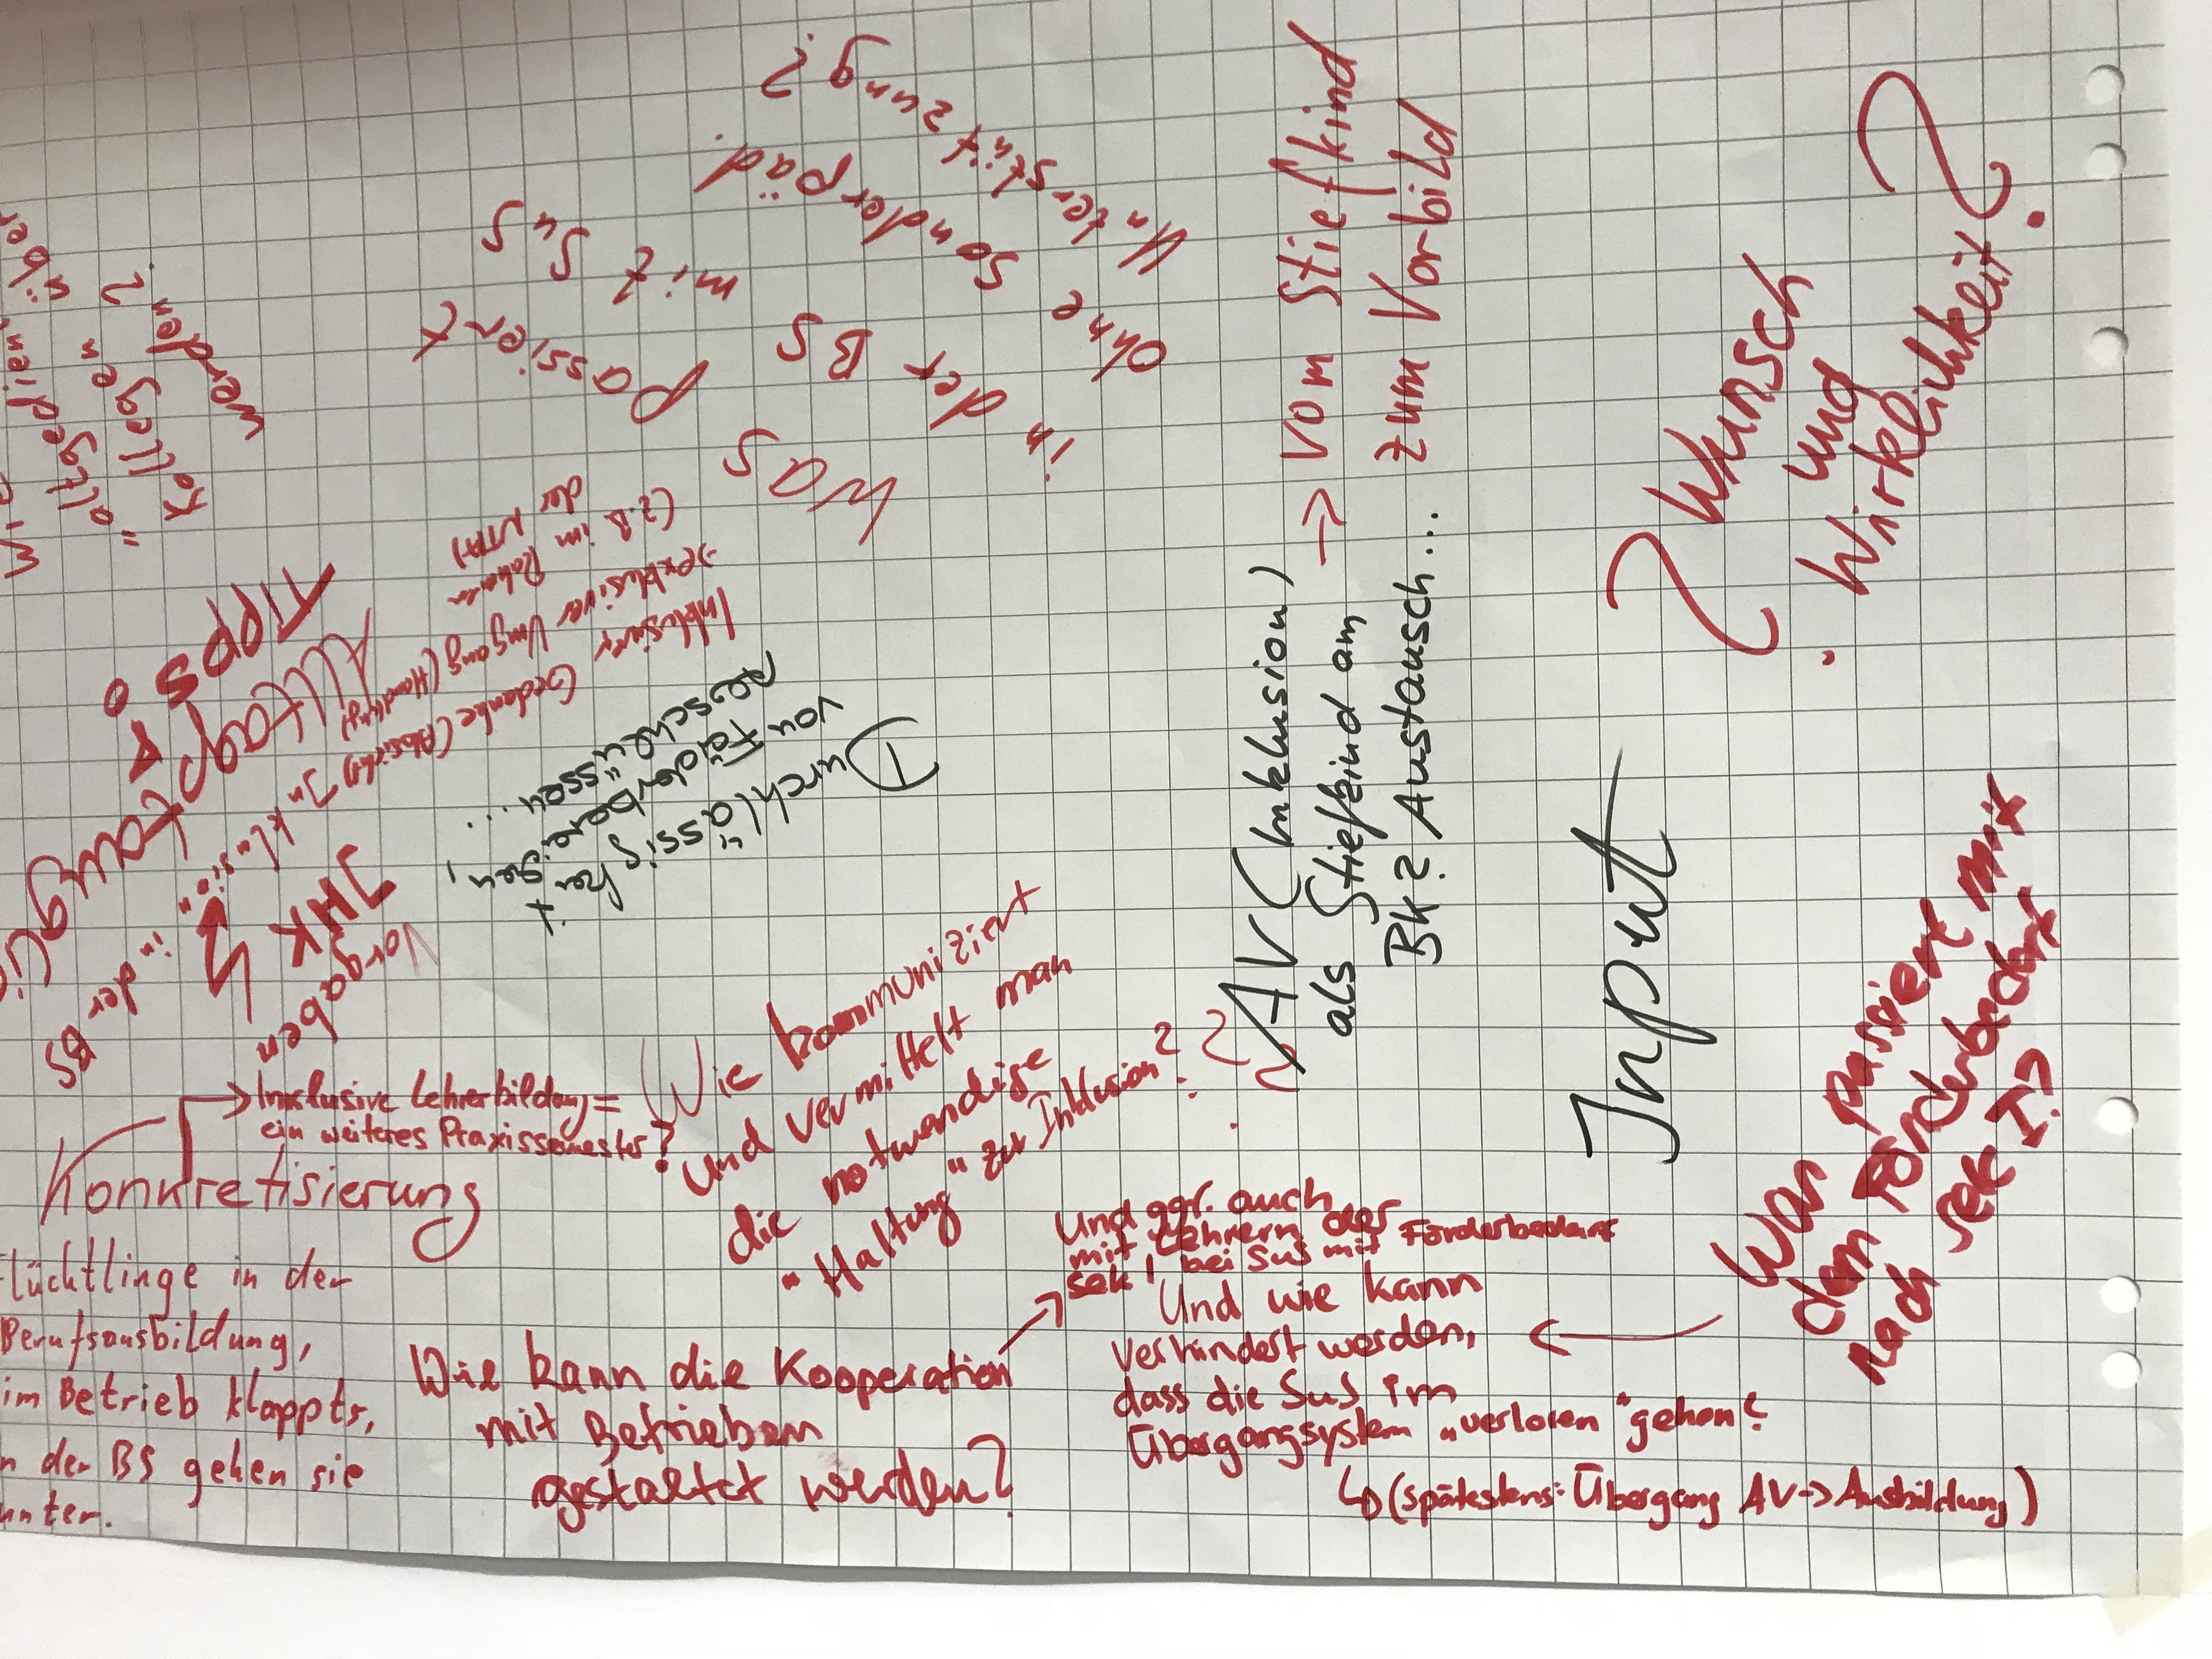 ¿ Wunsch
und
Wirklichkeit?
Input
AV (Inklusion)
als Stiefkind am
BK? Austausch...
→ vom Stiefkind
zum Vorbild
Was passiert
mit SuS
in der BS
ohne sonderpäd.
Unterstützung?
"altgedien
Kollegen
werden?
über
Alltag
Tipps
Inklusiver Gedanke (Absicht)
→ exklusiver Umgang (Handlung)
(z.B. im Rahmen
der NTA)
Durchlässigkeit
von Förderbereichen,
"Inklusion"
in der BS
IHK
Vorgaben
Konkretisierung
→ Inklusive Lehrerbildung =
ein weiteres Praxissemester?
Wie kommuniziert
und vermittelt man
die notwendige
"Haltung" zur Inklusion?
lüchtlinge in der
Berufsausbildung,
im Betrieb klappts,
n der BS gehen sie
unter.
Wie kann die Kooperation
mit Betrieben
gestaltet werden?
Und ggf. auch
mit Lehrern der
Sek I bei SuS mit Förderbedarf
Was passiert mit
dem Förderbedarf
nach Sek I?
Und wie kann
verhindert werden,
dass die SuS im
Übergangsystem "verloren" gehen?
↳ (spätestens: Übergang AV → Ausbildung)